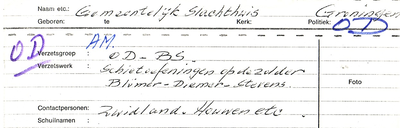 Naam etc.: Gemeentelijk Slachthuis Groningen
Geboren: te Kerk: Politiek: OD
OD AM.
Verzetsgroep : OD - BS.
Verzetswerk : Schietoefeningen op de zolder
Blömer - Diemer - Stevens
Foto
Contactpersonen: Zuidland - Houwen etc.
Schuilnamen :